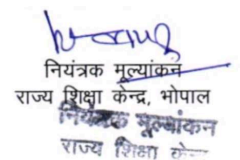 नियंत्रक मूल्यांकन
राज्य शिक्षा केन्द्र, भोपाल
नियंत्रक मूल्यांकन
राज्य शिक्षा केन्द्र